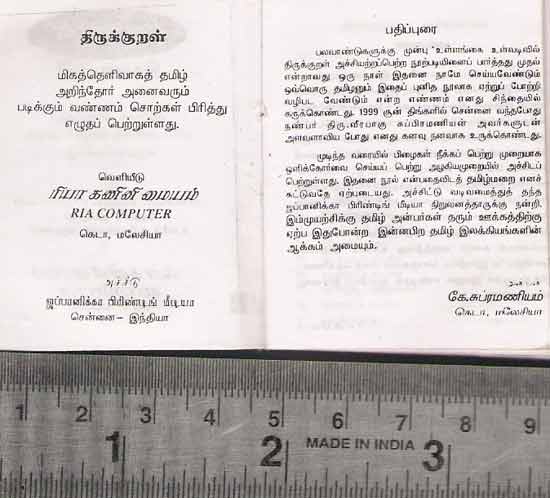 திருக்குறள்
மிகத்தெளிவாகத் தமிழ்
அறிந்தோர் அனைவரும்
படிக்கும் வண்ணம் சொற்கள் பிரித்து
எழுதப் பெற்றுள்ளது.
வெளியீடு
ரியா கனினி மையம்
RIA COMPUTER
கெடா, மலேசியா
அச்சிடு
ஜப்பானிக்கா பிரிண்டிங் மீடியா
சென்னை - இந்தியா
பதிப்புரை
பலவாண்டுகளுக்கு முன்பு உள்ளங்கை உள்வடிவில்
திருக்குறள் அச்சியற்றப்பெற்ற நூற்படியினைப் பார்த்தது முதல்
என்றாவது ஒரு நாள் இதனை நாமே செய்யவேண்டும்
ஒவ்வொரு தமிழனும் இதைப் புனித நூலாக ஏற்றுப் போற்றி
வழிபட வேண்டும் என்ற எண்ணம் எனது சிந்தையில்
கருக்கொண்டது. 1999 சூன் திங்களில் சென்னை வந்தபோது
நண்பர் திரு.வீரபாகு சுப்பிரமணியன் அவர்களுடன்
அளவளாவிய போது எனது கனவு நனவாக உருக்கொண்டது.
முடிந்த வரையில் பிழைகள் நீக்கப் பெற்று முறையாக
ஒளிக்கோர்வை செய்யப் பெற்று அழகியமுறையில் அச்சிடப்
பெற்றுள்ளது. இதனை நூல் என்பதைவிடத் தமிழ்மறை எனச்
சுட்டுவதே ஏற்புடையது. அச்சிட்டு வடிவமைத்துத் தந்த
ஜப்பானிக்கா பிரிண்டிங் மீடியா நிறுவனத்தாருக்கு நன்றி.
இம்முயற்சிக்கு தமிழ் அன்பர்கள் தரும் ஊக்கத்திற்கு
ஏற்ப இதுபோன்ற இன்னபிற தமிழ் இலக்கியங்களின்
ஆக்கம் அமையும்.
அன்புடன்
கே.சுப்ரமணியம்
கெடா, மலேசியா
1 2 3 4 5 6 7 8 9
1 2 MADE IN INDIA 3